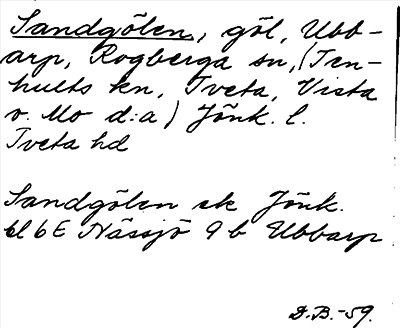 Sandgölen, göl, Ubb-
arp, Rogberga sn, (Ten-
hults kn, Tveta, Vista
o. Mo d:a) Jönk. l.
Tveta hd
Sandgölen ek Jönk.
bl 6E Nässjö 9 b Ubbarp
D.B.-59.